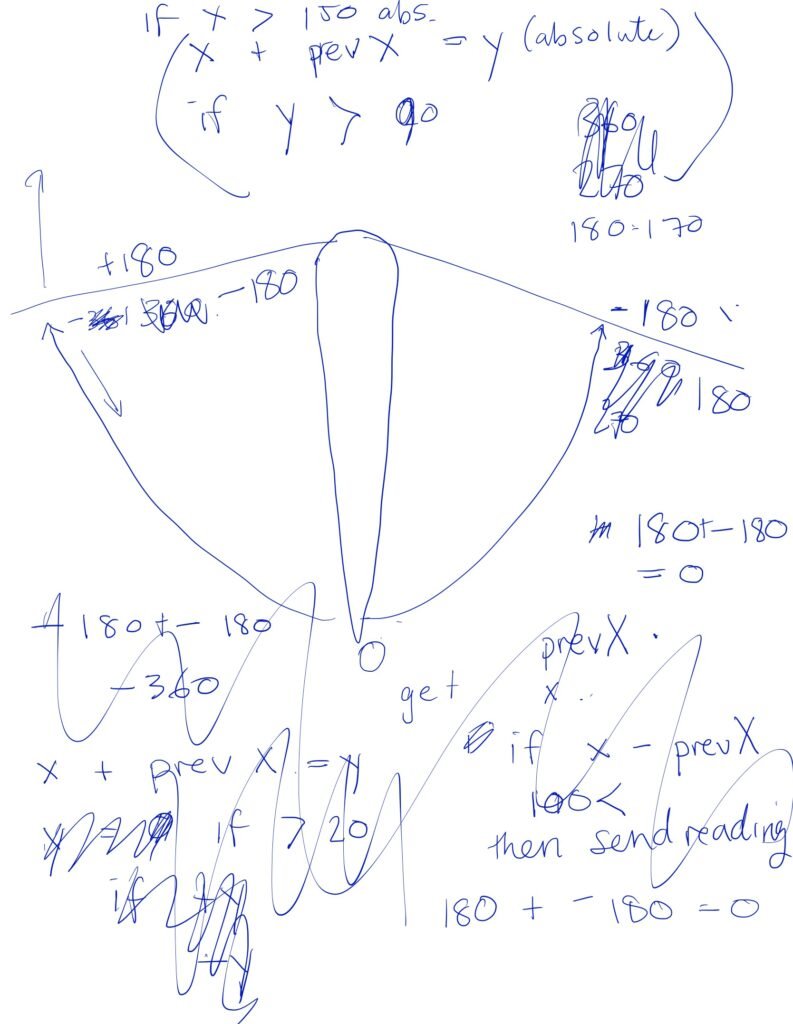 if x > 150 abs.
x + prev X = y (absolute)
if y > 90
360
270
180-170
+180
-180
-180
180
270
180+-180
= 0
+ 180 +- 180
-360
0
prevX
get x
if x - prevX
100<
then send reading
x + prev X = y
if > 20
if +y
+y
180 + - 180 = 0